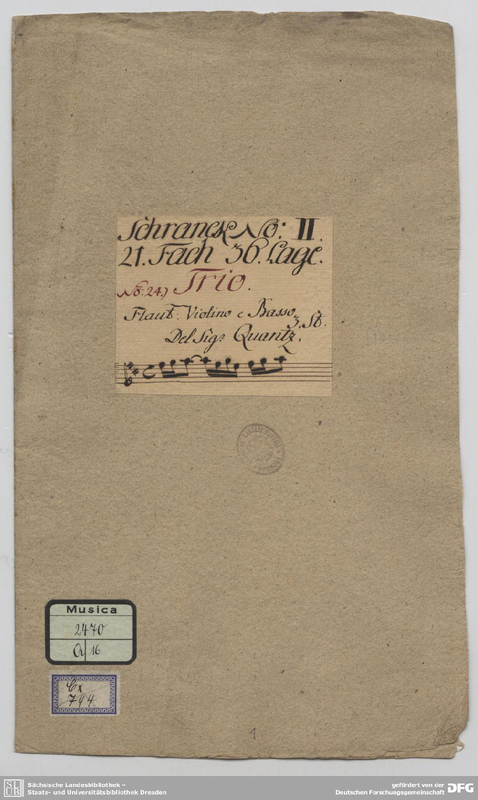 Schranck No: II.
21. Fach 36. Lage.
No: 24) Trio.
Flaut: Violino e Basso 3. St.
Del Sigr Quantz.
Musica
2470
Q 16
Cx
794
1
Sächsische Landesbibliothek –
Staats- und Universitätsbibliothek Dresden
gefördert von der
Deutschen Forschungsgemeinschaft
DFG